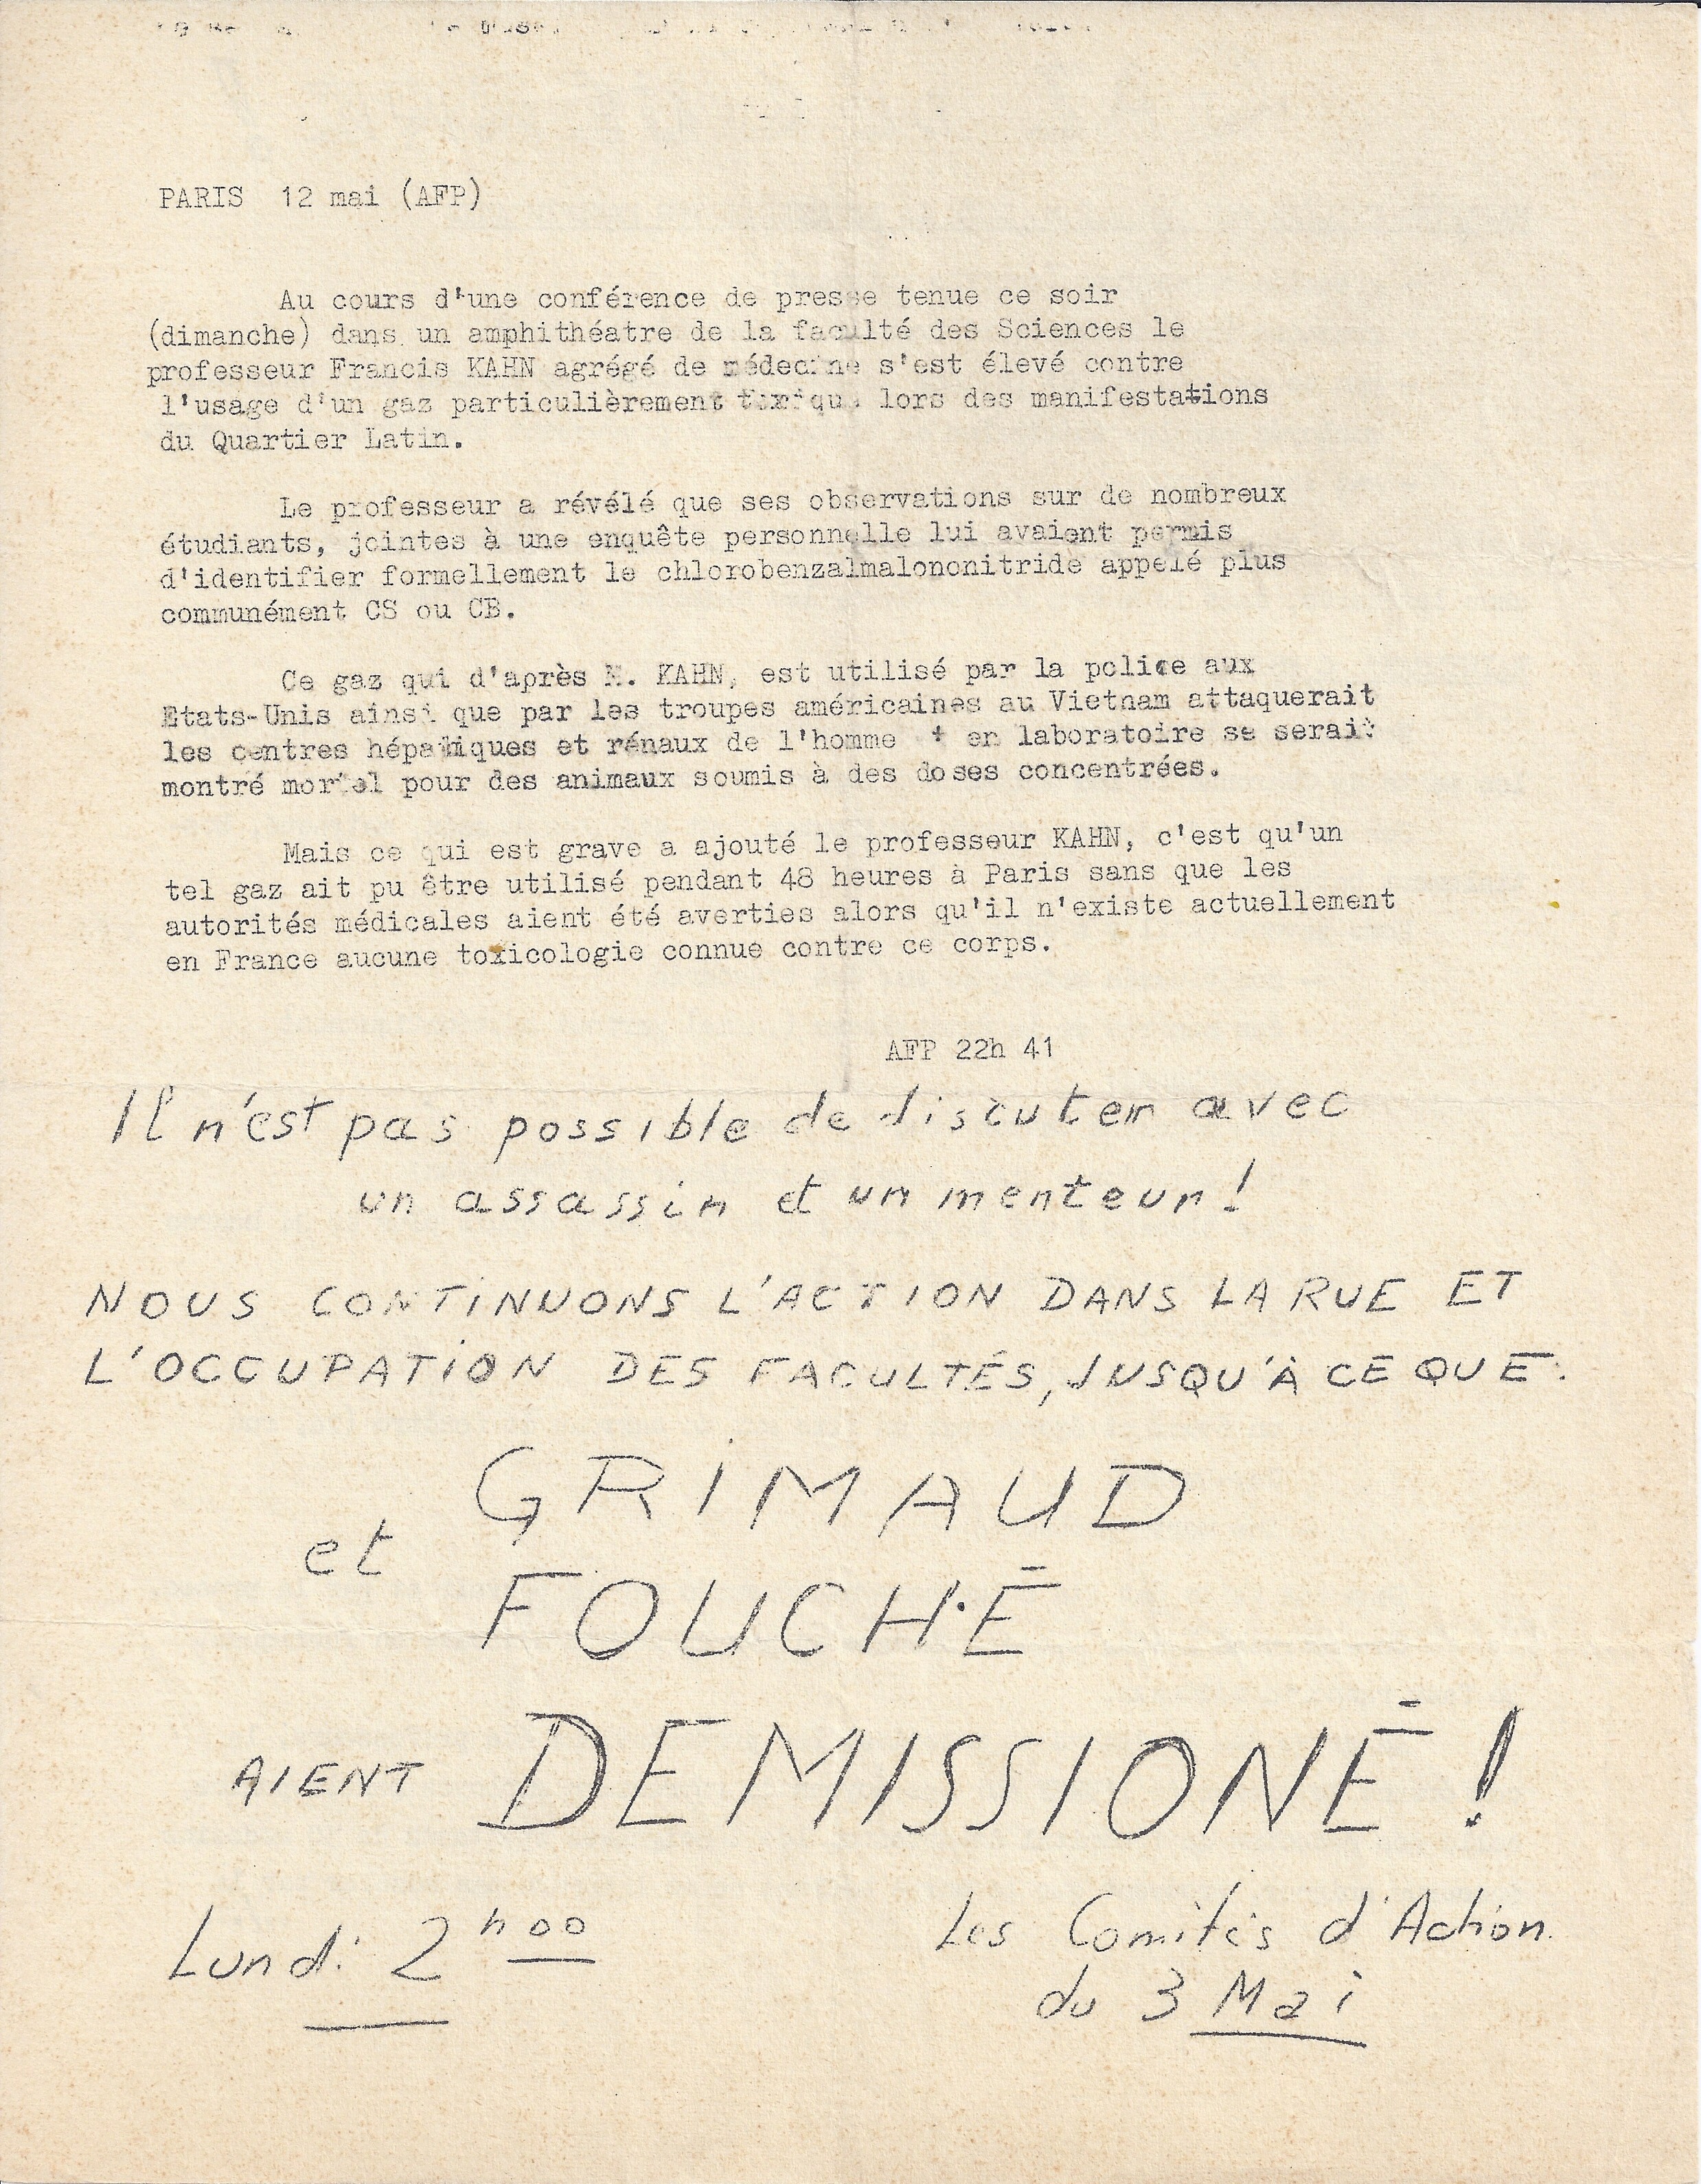 PARIS 12 mai (AFP)
Au cours d'une conférence de presse tenue ce soir
(dimanche) dans un amphithéatre de la faculté des Sciences le
professeur Francis KAHN agrégé de médecine s'est élevé contre
l'usage d'un gaz particulièrement toxique lors des manifestations
du Quartier Latin.
Le professeur a révélé que ses observations sur de nombreux
étudiants, jointes à une enquête personnelle lui avaient permis
d'identifier formellement le chlorobenzalmalononitride appelé plus
communément CS ou CB.
Ce gaz qui d'après M. KAHN, est utilisé par la police aux
Etats-Unis ainsi que par les troupes américaines au Vietnam attaquerait
les centres hépatiques et rénaux de l'homme + en laboratoire se serait
montré mortel pour des animaux soumis à des doses concentrées.
Mais ce qui est grave a ajouté le professeur KAHN, c'est qu'un
tel gaz ait pu être utilisé pendant 48 heures à Paris sans que les
autorités médicales aient été averties alors qu'il n'existe actuellement
en France aucune toxicologie connue contre ce corps.
AFP 22h 41
Il n'est pas possible de discuter avec
un assassin et un menteur!
NOUS CONTINUONS L'ACTION DANS LA RUE ET
L'OCCUPATION DES FACULTÉS, JUSQU'À CE QUE:
GRIMAUD
et FOUCHÉ
AIENT DEMISSIONÉ!
Lundi 2h00
Les Comités d'Action
du 3 Mai